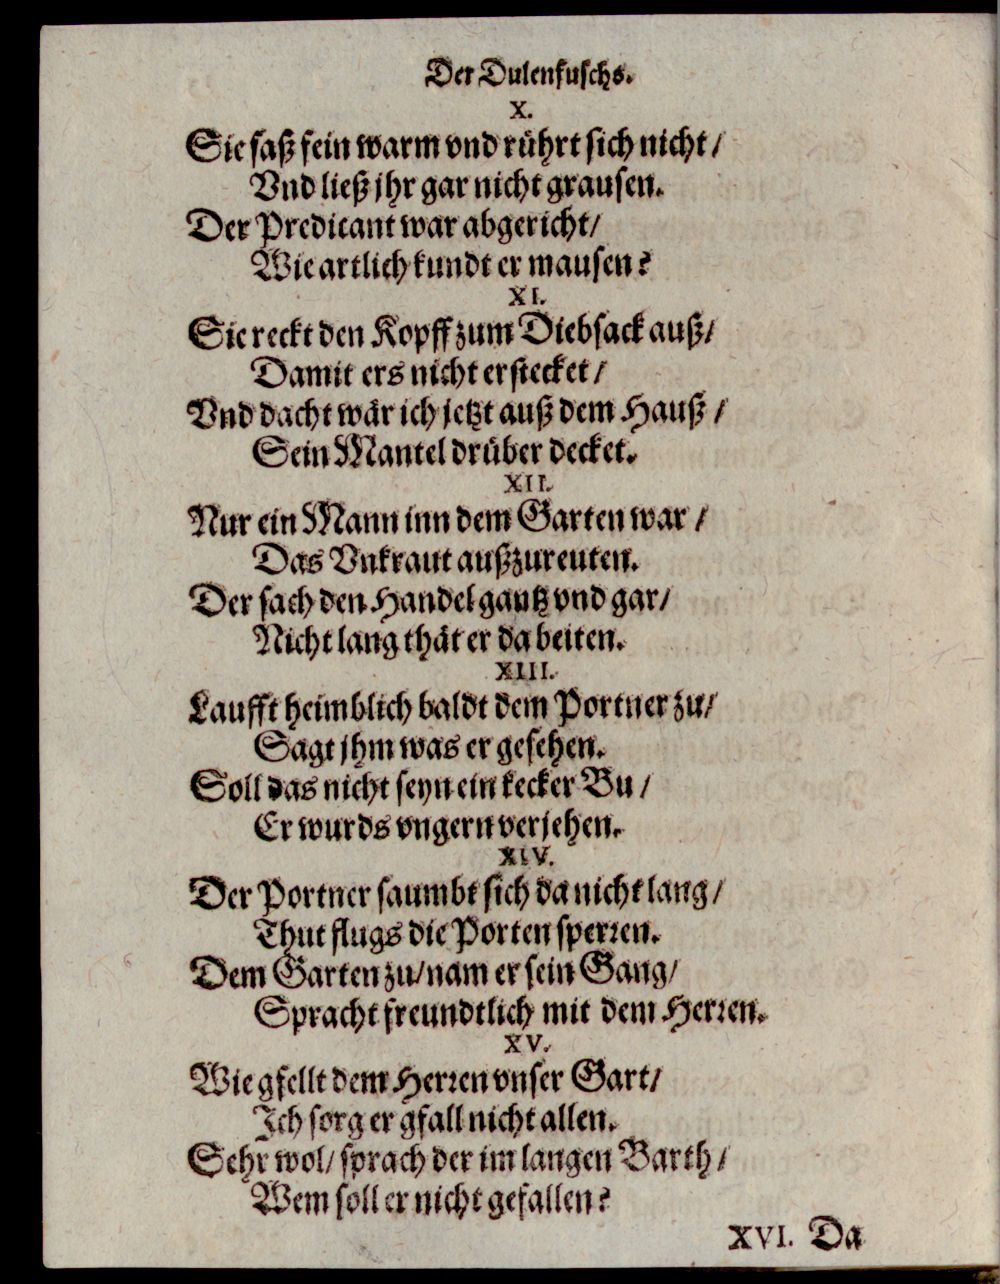 Der Dulenfuschs.
X.
Sie saß fein warm vnd rührt sich nicht/
Vnd ließ jhr gar nicht grausen.
Der Predicant war abgericht/
Wie artlich kundt er mausen?
XI.
Sie reckt den Kopff zum Diebsack auß/
Damit ers nicht erstecket/
Vnd dacht wär ich jetzt auß dem Hauß/
Sein Mantel drüber decket.
XII.
Nur ein Mann inn dem Garten war/
Das Vnkraut außzureuten.
Der sach den Handel gantz vnd gar/
Nicht lang thät er da beiten.
XIII.
Laufft heimblich baldt dem Portner zu/
Sagt jhm was er gesehen.
Soll das nicht seyn ein kecker Bu/
Er wurds vngern verjehen.
XIV.
Der Portner saumbt sich da nicht lang/
Thut flugs die Porten sperren.
Dem Garten zu/ nam er sein Gang/
Spracht freundtlich mit dem Herren.
XV.
Wie gfellt dem Herren vnser Gart/
Ich sorg er gfall nicht allen.
Sehr wol/ sprach der im langen Barth/
Wem soll er nicht gefallen?
XVI. Da